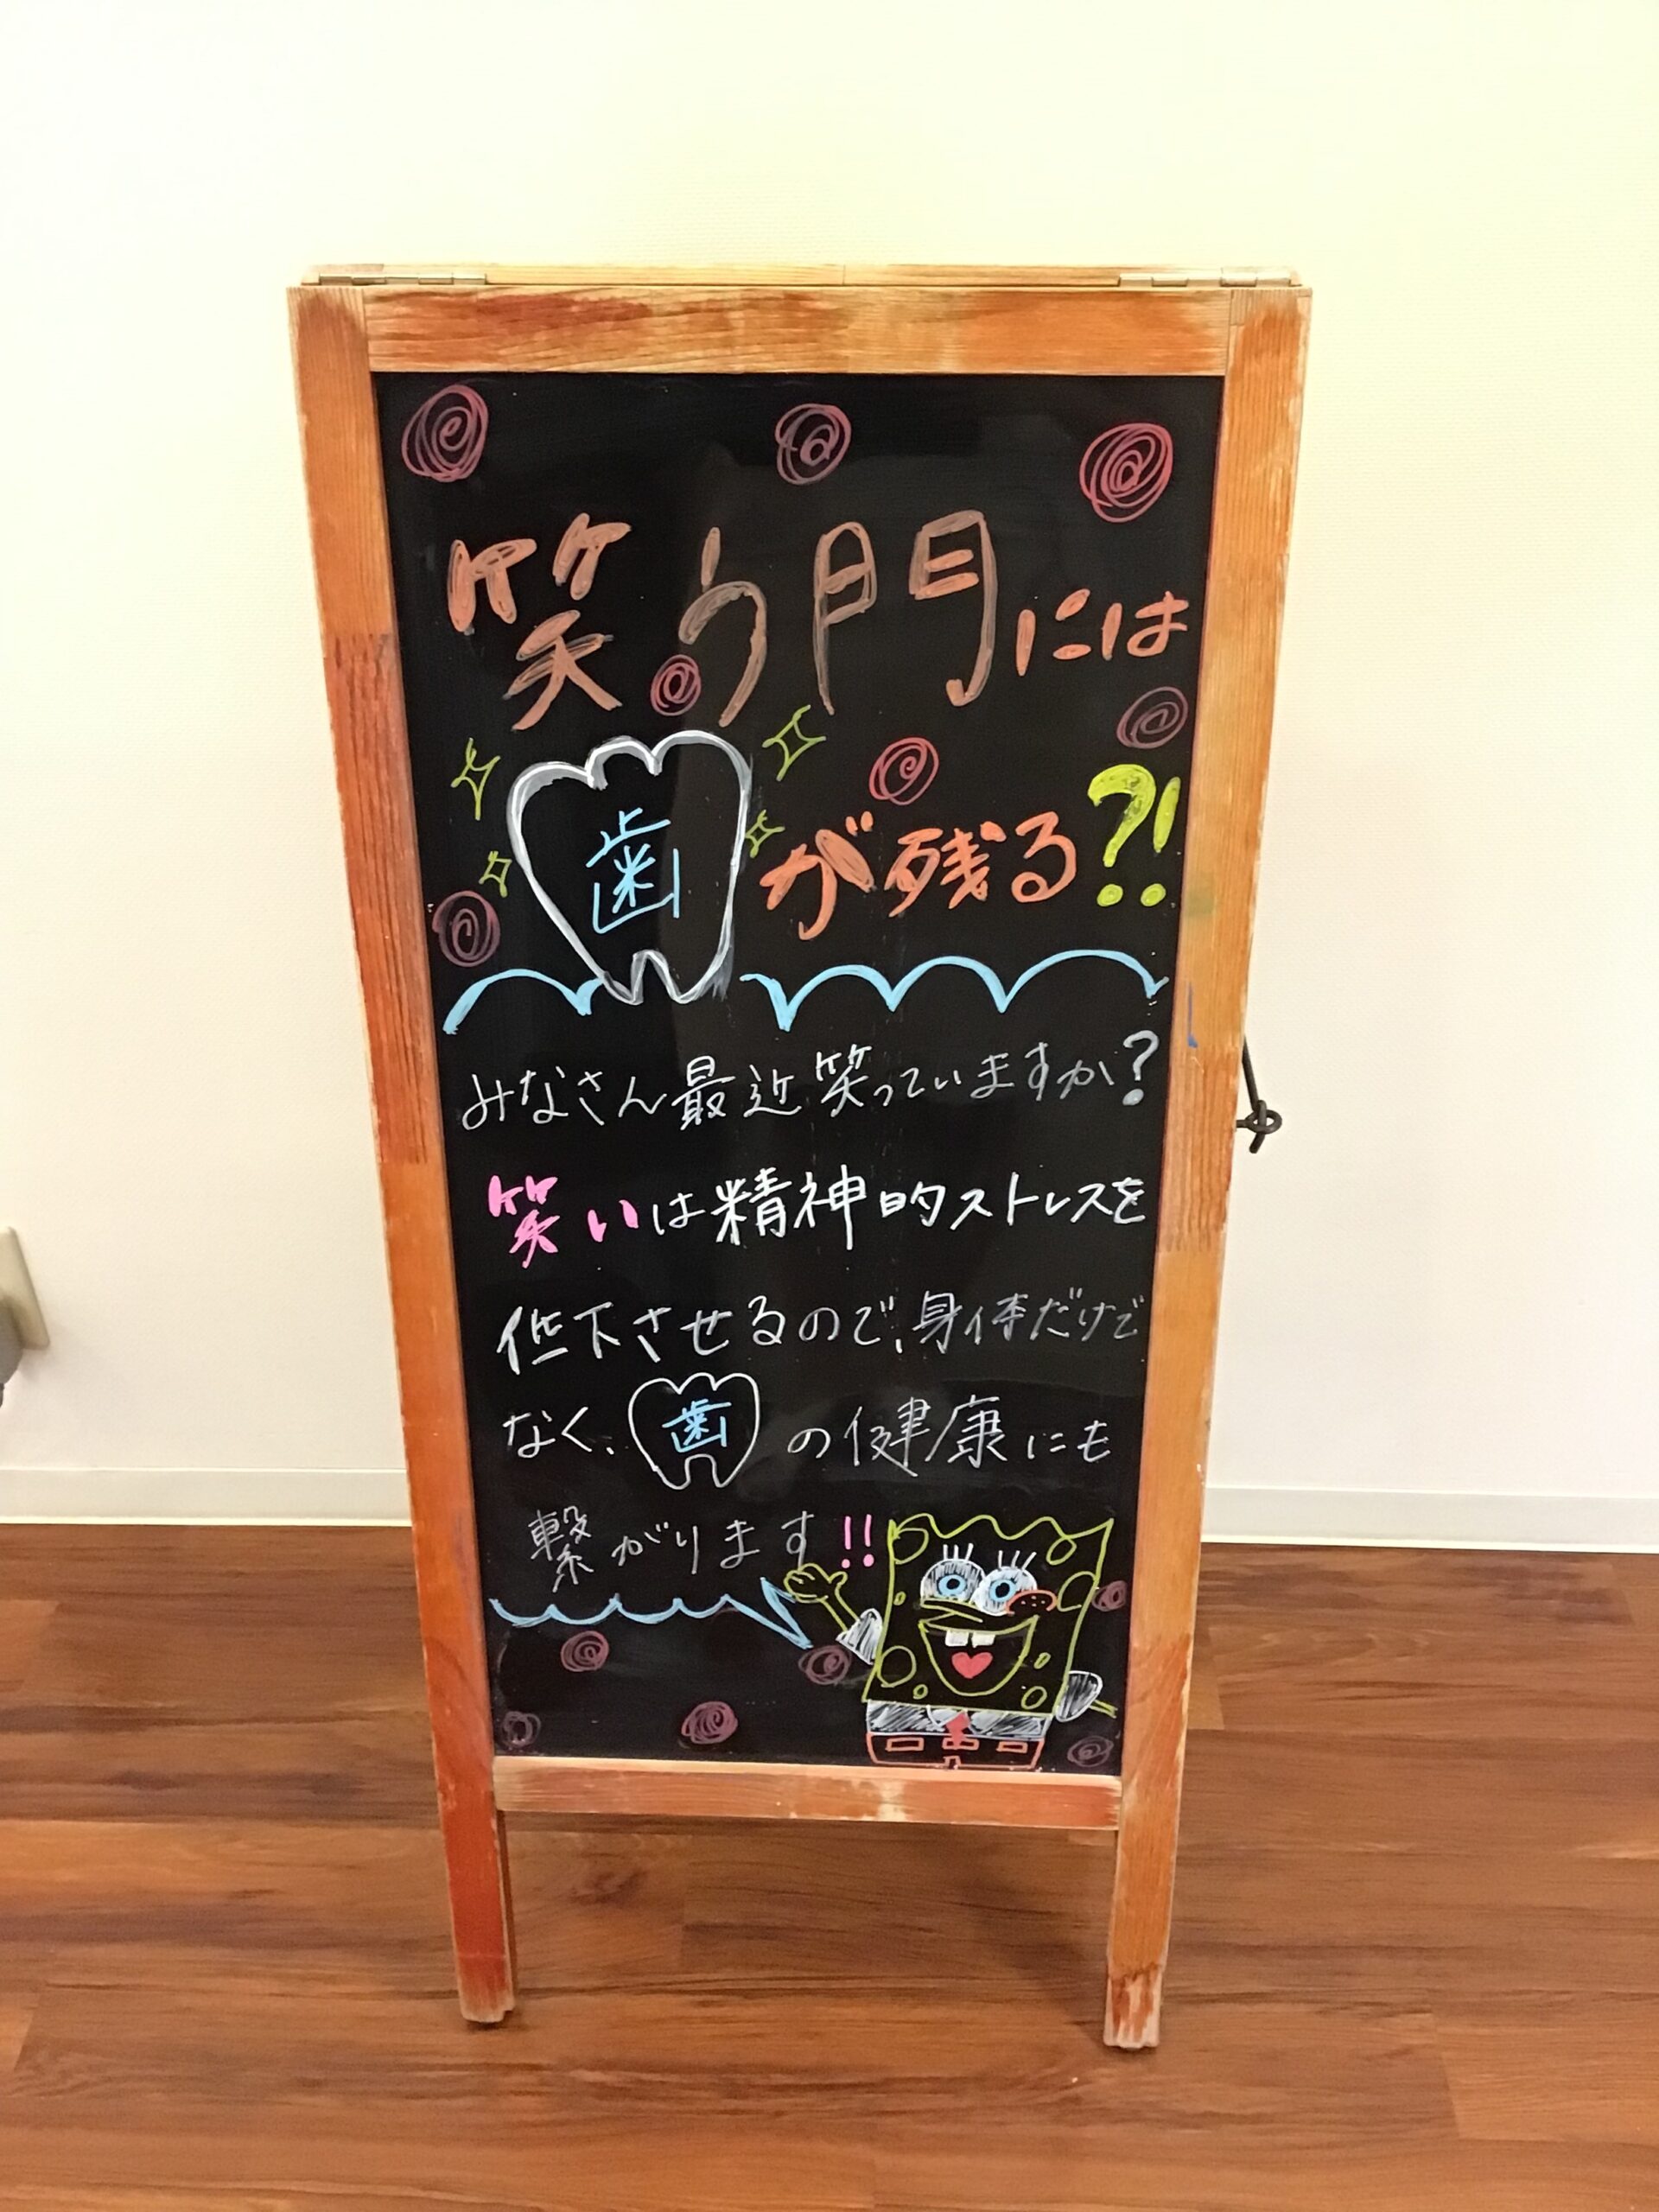 笑う門には
歯が残る?!
みなさん最近笑っていますか?
笑いは精神的ストレスを
低下させるので、身体だけで
なく、歯の健康にも
繋がります!!